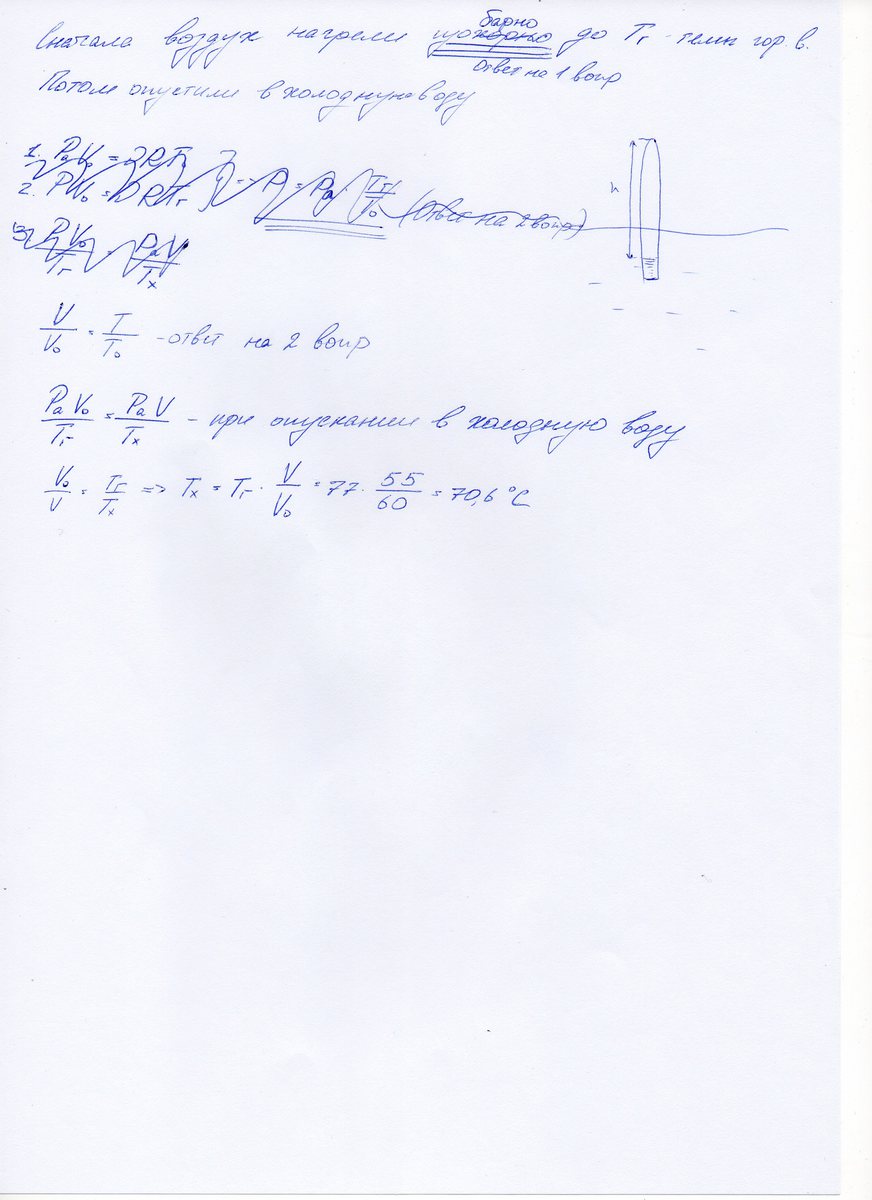 барно
Сначала воздух нагрели изохорно до Tг - темп гор. в.
Ответ на 1 вопр
Потом опустили в холодную воду
1. PaV₀ = νRT₀
2. PV₀ = νRTг } => P = Pa · Tг/T₀ (Ответ на 2 вопр)
3. PV₀/Tг = PaV/Tx
h
V/V₀ = T/T₀ - ответ на 2 вопр
PaV₀/Tг = PaV/Tx - при опускании в холодную воду
V₀/V = Tг/Tx => Tx = Tг · V/V₀ = 77 · 55/60 = 70,6 °C